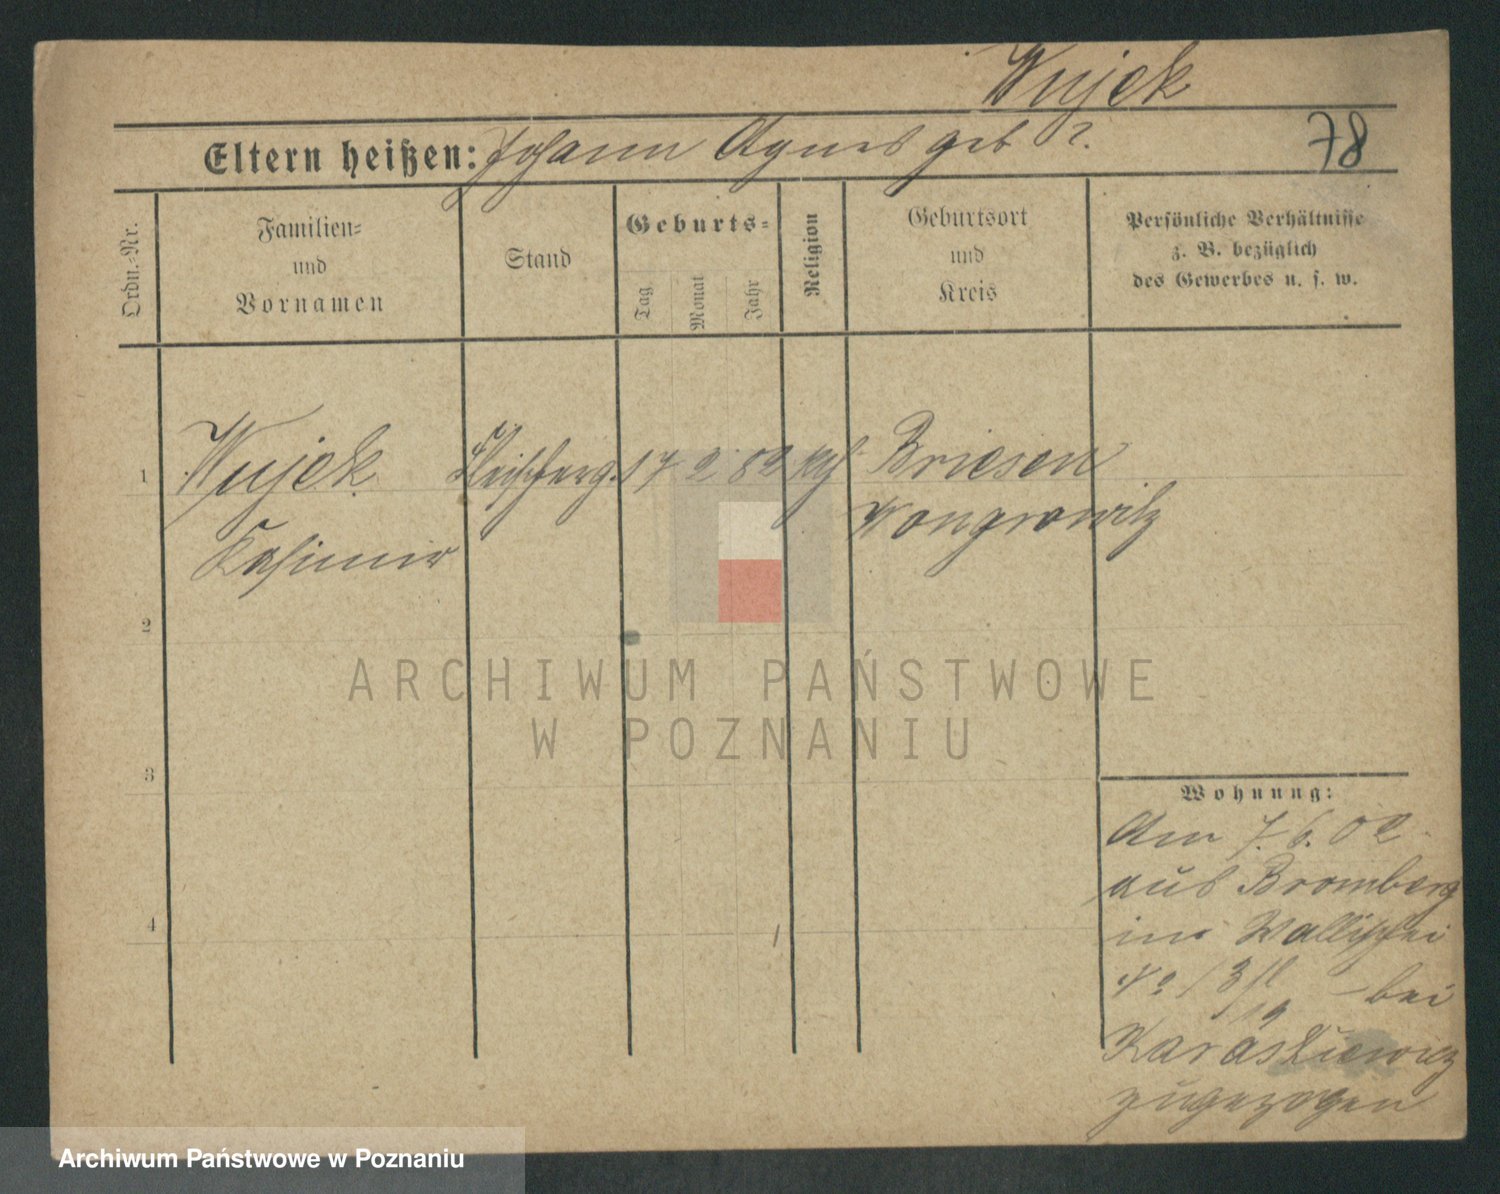 Wujek
Eltern heißen: Johann Agnes geb ?.
78
Ordn.-Nr.
Familien-
und
Vornamen
Stand
Geburts-
Tag
Monat
Jahr
Religion
Geburtsort
und
Kreis
Persönliche Verhältnisse
z. B. bezüglich
des Gewerbes u. s. w.
1 Wujek Fleischerg. 17 2 82 kth Briesen
Kasimir Wongrowitz
2
3
4
ARCHIWUM PAŃSTWOWE
W POZNANIU
Wohnung:
Am 7.6.02
aus Bromberg
in Wallischei
No 13/ bei
Karaśkiewicz
zugezogen
Archiwum Państwowe w Poznaniu